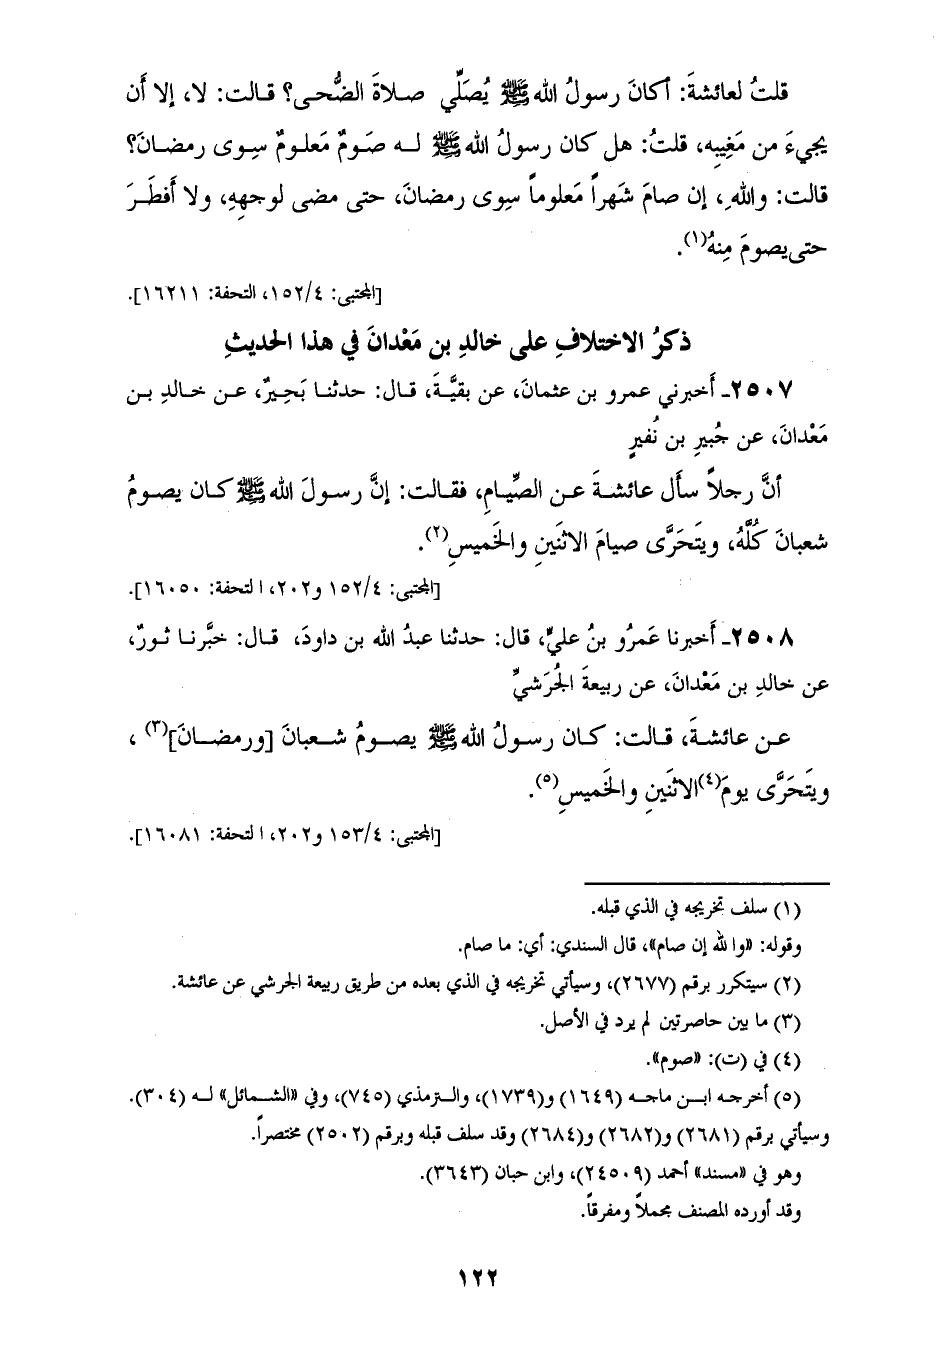 قلتُ لعائشةَ: أكانَ رسولُ الله ﷺ يُصَلِّي صلاةَ الضُّحى؟ قالت: لا، إلا أَن
يجيءَ من مَغِيبِه، قلتُ: هل كان رسولُ الله ﷺ له صَومٌ مَعلومٌ سِوى رمضانَ؟
قالت: واللهِ، إن صامَ شَهراً مَعلوماً سِوى رمضانَ، حتى مضى لوجهِهِ، ولا أَفطَرَ
حتى يصومَ مِنهُ(١).
[المجتبى: ١٥٢/٤، التحفة: ١٦٢١١].
ذكرُ الاختلافِ على خالدِ بن مَعْدانَ في هذا الحديثِ
٢٥٠٧ـ أَخبرني عمرو بن عثمانَ، عن بقيَّةَ، قال: حدثنا بَحِيرٌ، عن خالدِ بن
مَعْدانَ، عن جُبيرِ بن نُفيرٍ
أنَّ رجلاً سأل عائشةَ عن الصِّيامِ، فقالت: إنَّ رسولَ الله ﷺ كان يصومُ
شعبانَ كُلَّهُ، ويتَحَرَّى صيامَ الاثنَينِ والخَميسِ(٢).
[المجتبى: ١٥٢/٤ و٢٠٢، التحفة: ١٦٠٥٠].
٢٥٠٨ـ أَخبرنا عَمرُو بنُ عليٍّ، قال: حدثنا عبدُ الله بن داودَ، قال: خبَّرنا ثورٌ،
عن خالدِ بن مَعْدانَ، عن ربيعةَ الجُرَشيِّ
عن عائشةَ، قالت: كان رسولُ الله ﷺ يصومُ شعبانَ [ورمضانَ](٣)،
ويتَحَرَّى يومَ(٤) الاثنَينِ والخَميسِ(٥).
[المجتبى: ١٥٣/٤ و٢٠٢، التحفة: ١٦٠٨١].
(١) سلف تخريجه في الذي قبله.
وقوله: «والله إن صام»، قال السندي: أي: ما صام.
(٢) سيتكرر برقم (٢٦٧٧)، وسيأتي تخريجه في الذي بعده من طريق ربيعة الجرشي عن عائشة.
(٣) ما بين حاصرتين لم يرد في الأصل.
(٤) في (ت): «صوم».
(٥) أخرجه ابن ماجه (١٦٤٩) و(١٧٣٩)، والترمذي (٧٤٥)، وفي «الشمائل» له (٣٠٤).
وسيأتي برقم (٢٦٨١) و(٢٦٨٢) و(٢٦٨٤) وقد سلف قبله وبرقم (٢٥٠٢) مختصراً.
وهو في «مسند» أحمد (٢٤٥٠٩)، وابن حبان (٣٦٤٣).
وقد أورده المصنف مجملاً ومفرقاً.
١٢٢